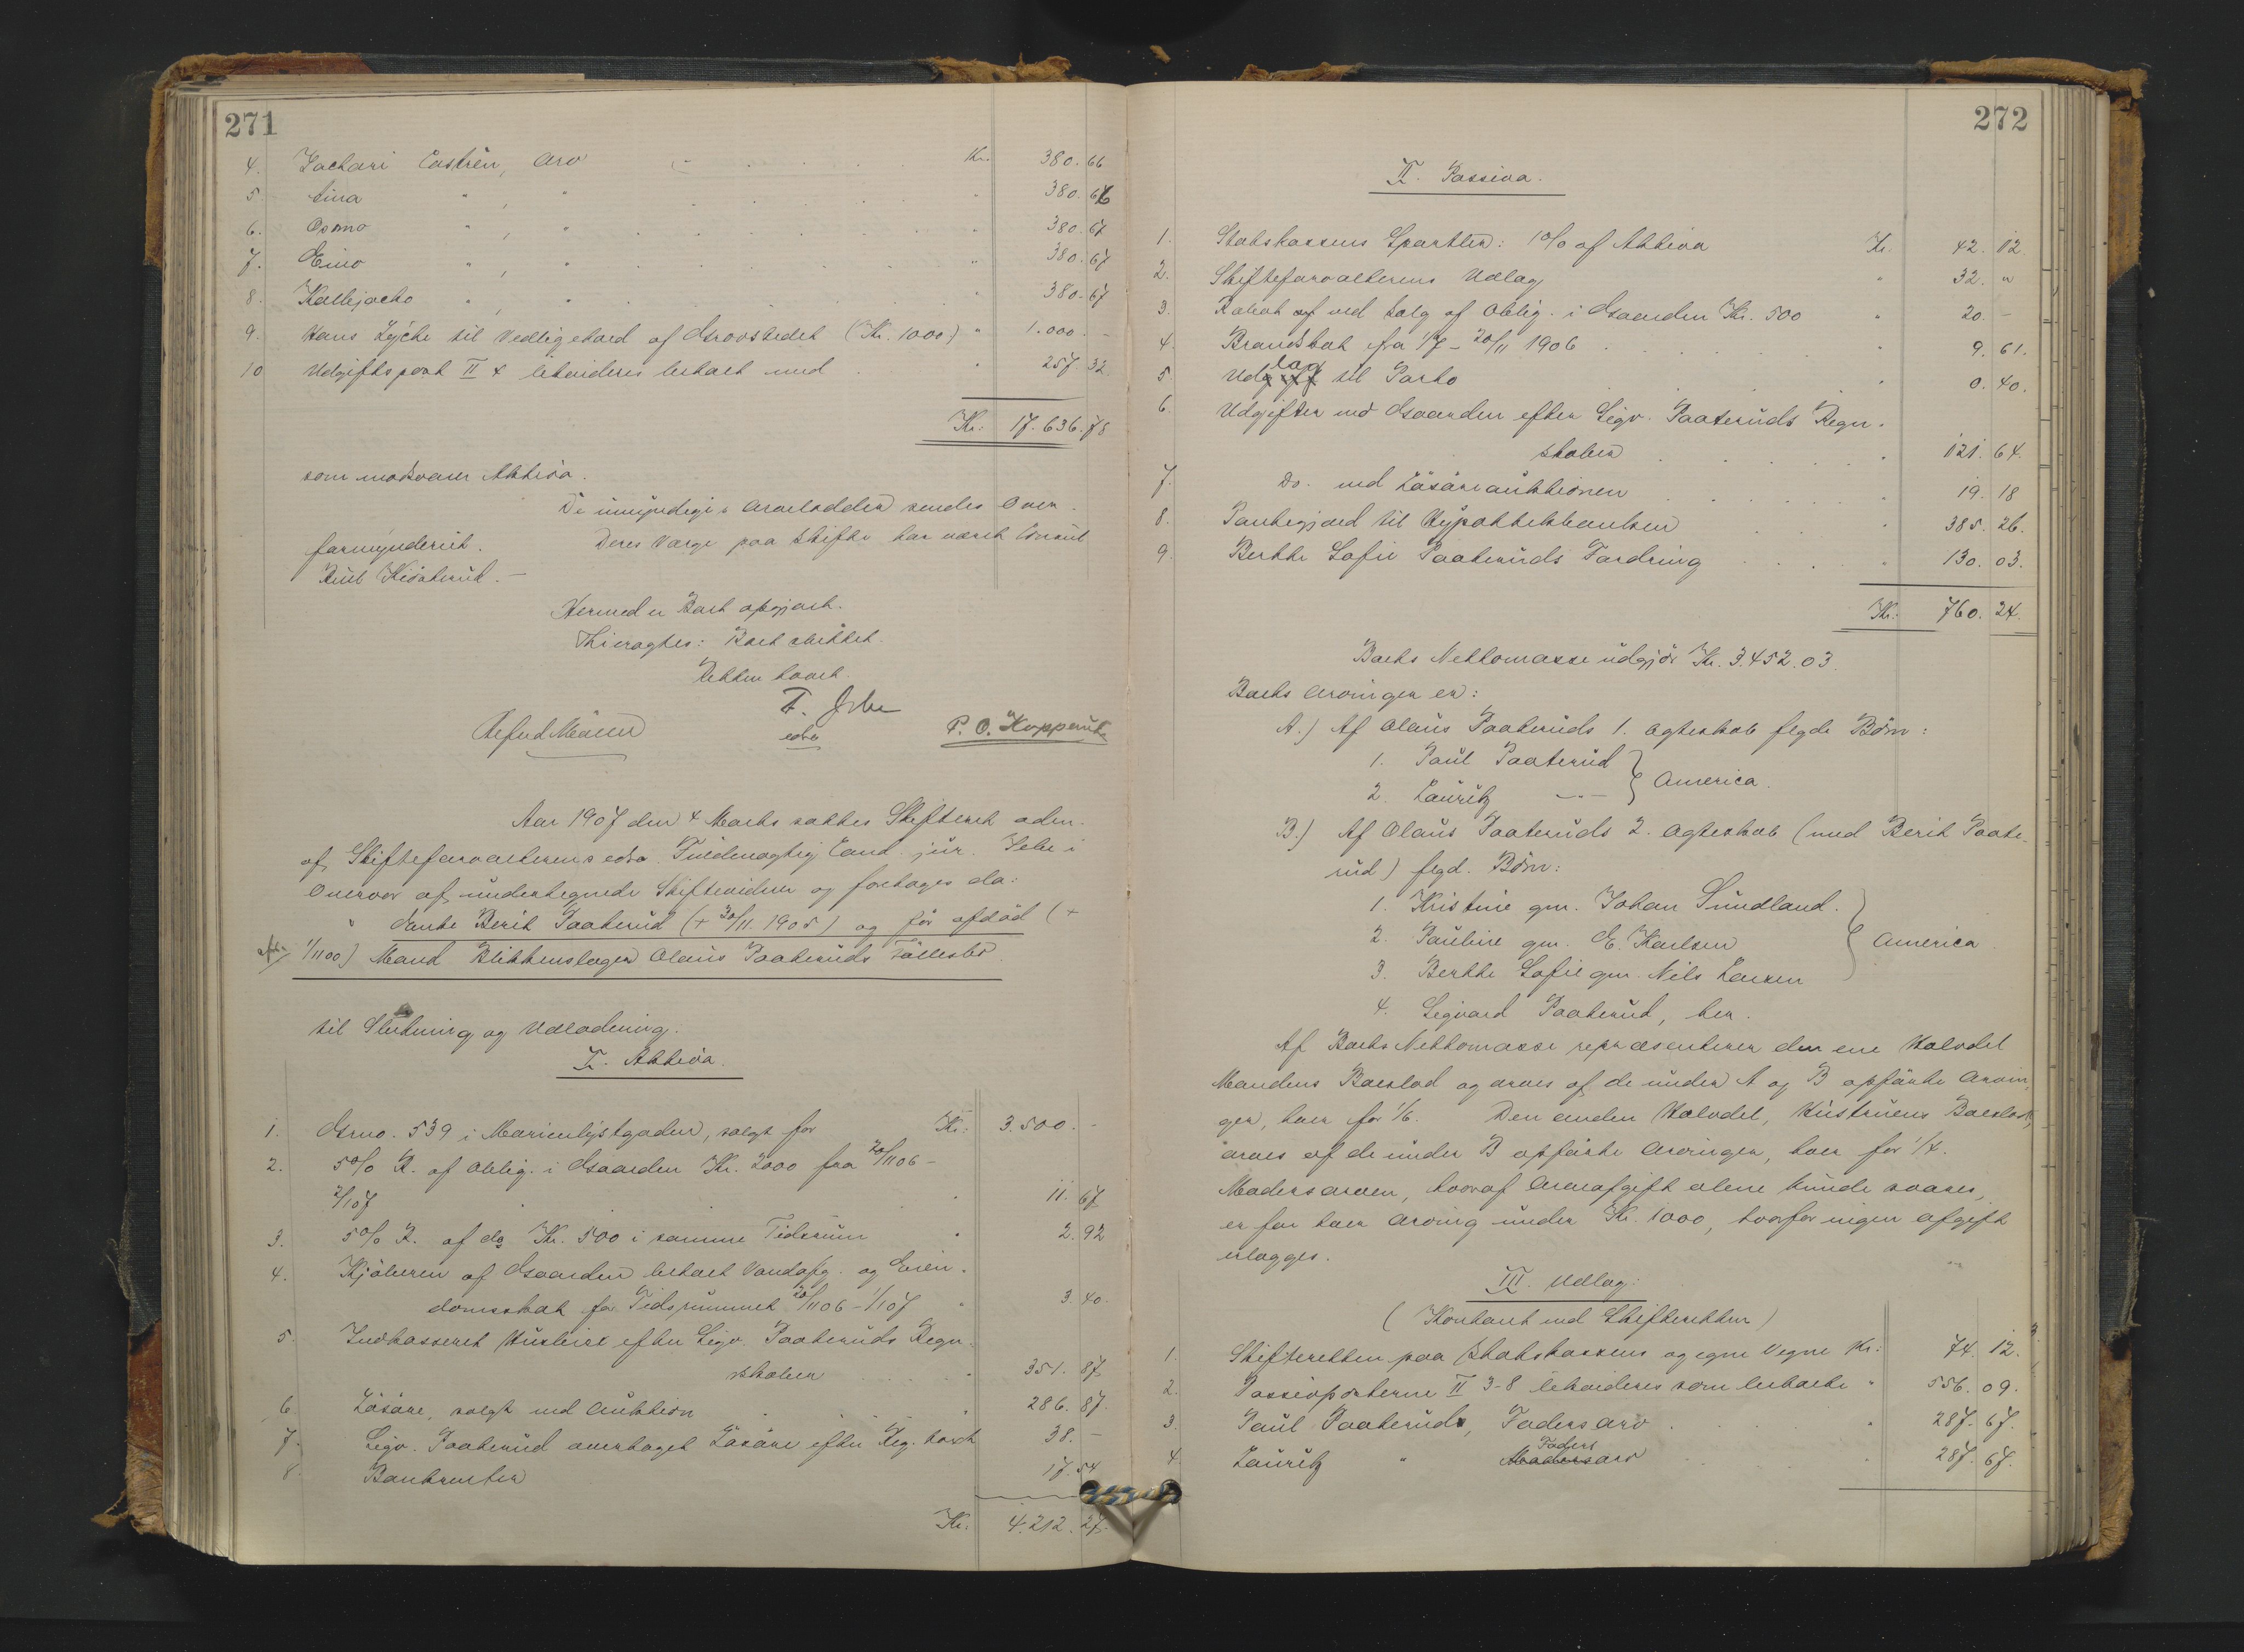 271
4. Zachari Castrén, Arv - Kr. 380.66
5. Aina " , " " 380.66
6. Osmo " , " " 380.67
7. Eino " , " " 380.67
8. Kallejacko " , " " 380.67
9. Hans Lycke til Vedligehold af Gravstedet (Kr. 1000) " 1.000. -
10 Udgiftspost II 4 likvideres betalt med " 257 32.
Kr: 17.636.78
som modsvarer Aktiva.
De umyndiges Arvelodder sendes Over-
formynderiet. Deres Værge paa Skifte har været Consul
Hermed er Boet opgjort.
Thi eragtes: Boet sluttet.
Retten hævet.
edsv
P. O. Kopperud
Aar 1907 den 4 Marts sattes Skifteret aden.
af Skifteforvalterens edsv. Fuldmægtig Cand. jur. Jebe i
Overvær af undertegnede Skiftevidner og foretages da:
" Enke Berit Paaterud (+ 30/11. 1905) og før afdød (+
1/1100) Mand Blikkenslager Olaus Paateruds Fællesbo.
til Slutning og Udlodning.
I. Aktiva.
1. Grno. 539 i Marienlystgaden, solgt for Kr: 3.500. -
2. 5 % R. af Oblig. i Gaarden Kr. 2000 fra 20/1106 -
2/107 " 11. 67
3. 5 % R. af do Kr. 500 i samme Tidsrum " 2.92
4. Kjøberen af Gaarden betalt Vandafg. og Eien-
domsskat for Tidsrummet 20/1106 - 1/107 " 3.40.
5. Indkasseret Husleie efter Sigv. Paateruds Regn-
skaber " 351. 87
6. Løsøre, solgt ved Auktion " 286. 87.
7. Sigv. Paaterud overtaget Løsøre efter Reg. taxt 38. -
8. Bankrenter 17.54
Kr: 4.212.27.
272
II. Passiva.
1. Statskassens Sportler: 1 % af Aktiva Kr. 42.12
2. Skifteforvalterens Udlæg " 32. "
3. Rabat ved Salg af Oblig. i Gaarden Kr. 500 " 20. -
4. Brandskat fra 1/7 - 20/11 1906 " 9.61.
5 Udlæg til Porto " 0.40.
6. Udgifter ved Gaarden efter Sigv. Paateruds Regn-
skaber " 121.64.
7. Do. ved Løsøreauktionen " 19.18
8. Pantegjæld til Hypothekbanken " 385.26.
9. Berthe Sofie Paateruds Fordring " 130.03.
Kr: 760.24.
Boets Nettomasse udgjør Kr. 3.452.03.
Boets Arvinger er:
A.) Af Olaus Paateruds 1. Ægteskab flgde Børn:
1. Paul Paaterud
2. Lauritz -"-
America.
B.) Af Olaus Paateruds 2. Ægteskab (med Berit Paate-
rud) flgd. Børn:
1. Kristine gm. Johan Sundland.
2. Pauline gm. E. Karlsen
3. Berthe Sofie gm. Nils Larsen
America
4. Sigvard Paaterud, her.
Af Boets Nettomasse repræsenterer den ene Halvdel
Mandens Boeslod og arves af de under A og B opførte Arvin-
ger, hver for 1/6. Den anden Halvdel, Hustruens Boeslod,
arves af de under B opførte Arvinger, hver for 1/4.
Modersarven, hvoraf Arveafgift alene kunde svares,
er for hver Arving under Kr. 1000, hvorfor ingen afgift
erlægges.
III. Udlæg:
(Kontant ved Skifteretten)
1. Skifteretten paa Statskassens og egne Vegne Kr: 74.12.
2. Passivposterne II 3-8 likvideres som betalte " 556.09.
3. Paul Paateruds, Fadersarv " 287.67.
4. Lauritz " Fadersarv " 287.67.